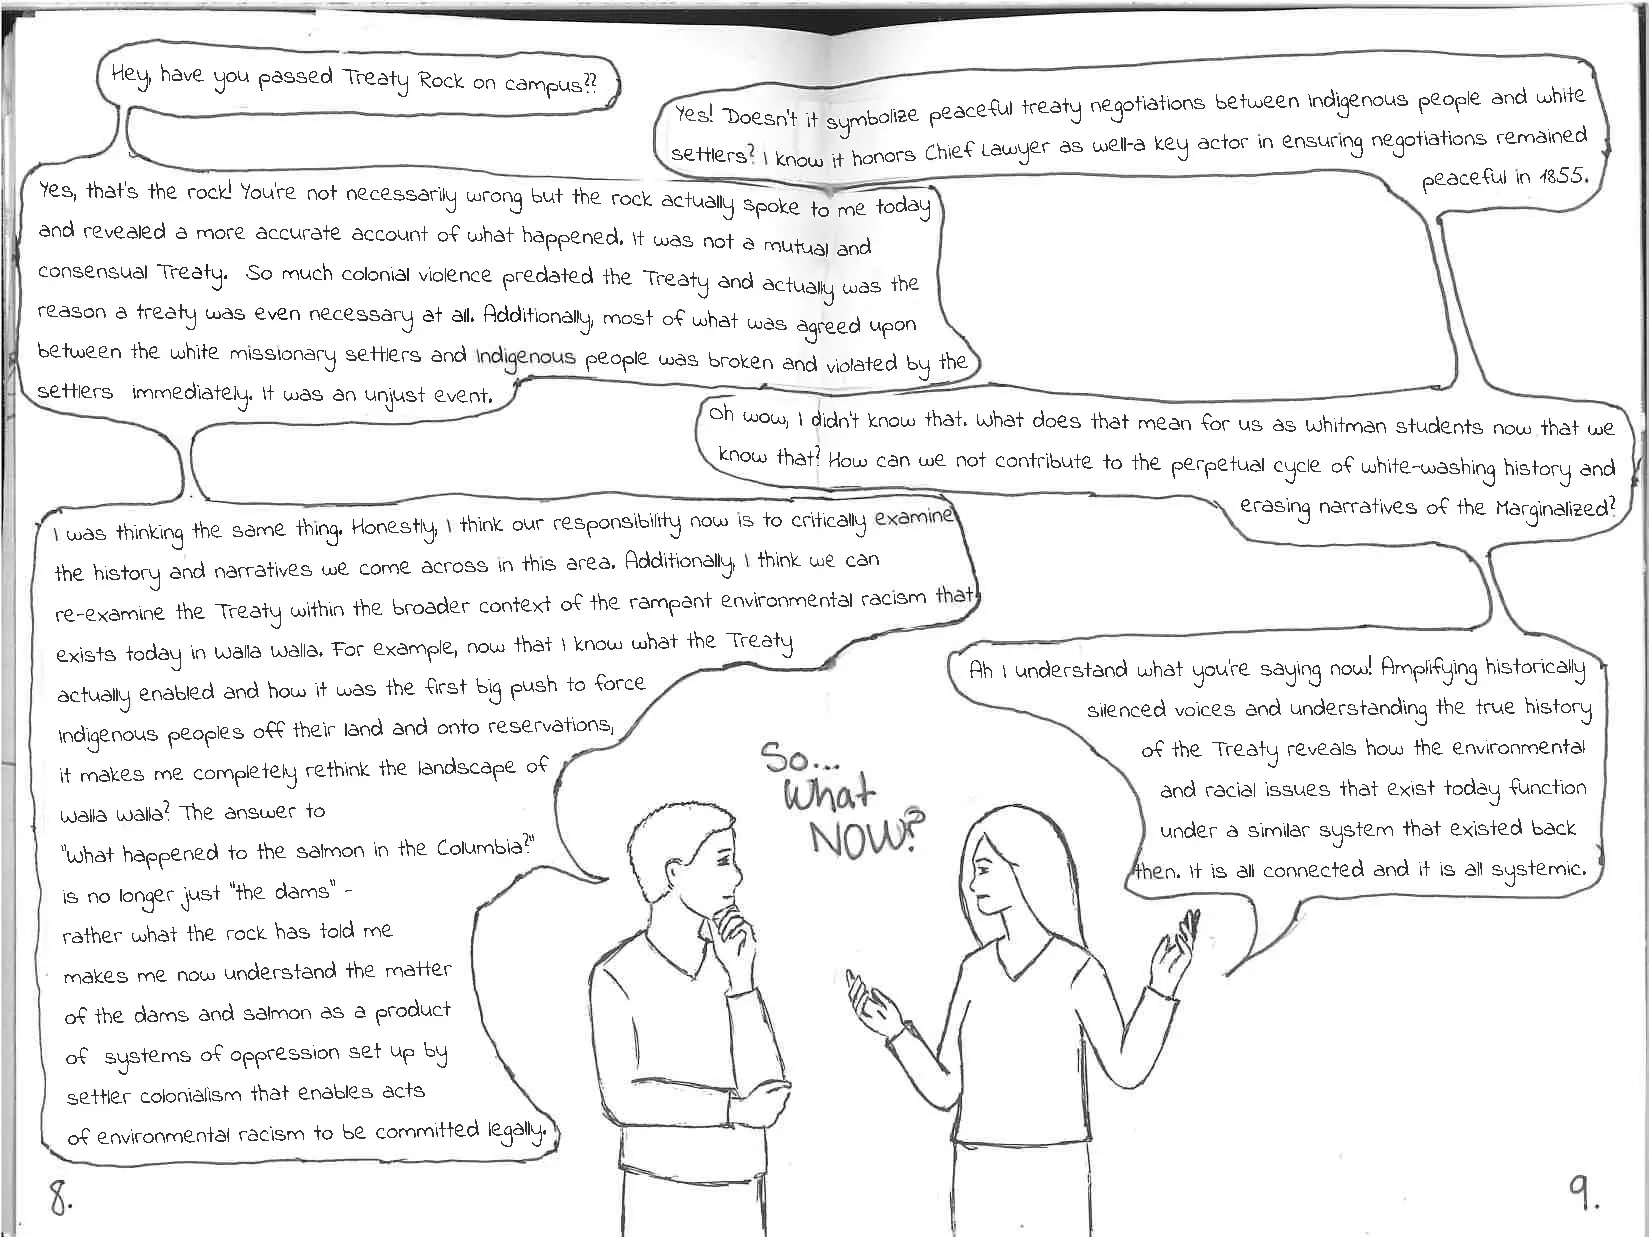 Hey, have you passed Treaty Rock on campus??
Yes! Doesn't it symbolize peaceful treaty negotiations between Indigenous people and white
settlers? I know it honors Chief Lawyer as well-a key actor in ensuring negotiations remained
peaceful in 1855.
Yes, that's the rock! You're not necessarily wrong but the rock actually spoke to me today
and revealed a more accurate account of what happened. It was not a mutual and
consensual Treaty. So much colonial violence predated the Treaty and actually was the
reason a treaty was even necessary at all. Additionally, most of what was agreed upon
between the white missionary settlers and Indigenous people was broken and violated by the
settlers immediately. It was an unjust event.
Oh wow, I didn't know that. What does that mean for us as Whitman students now that we
know that? How can we not contribute to the perpetual cycle of white-washing history and
erasing narratives of the Marginalized?
I was thinking the same thing. Honestly, I think our responsibility now is to critically examine
the history and narratives we come across in this area. Additionally, I think we can
re-examine the Treaty within the broader context of the rampant environmental racism that
exists today in Walla Walla. For example, now that I know what the Treaty
actually enabled and how it was the first big push to force
Indigenous peoples off their land and onto reservations,
it makes me completely rethink the landscape of
Walla Walla? The answer to
"What happened to the salmon in the Columbia?"
is no longer just "the dams" -
rather what the rock has told me
makes me now understand the matter
of the dams and salmon as a product
of systems of oppression set up by
settler colonialism that enables acts
of environmental racism to be committed legally.
Ah I understand what you're saying now! Amplifying historically
silenced voices and understanding the true history
of the Treaty reveals how the environmental
and racial issues that exist today function
under a similar system that existed back
then. It is all connected and it is all systemic.
So...
What
NOW?
8.
9.